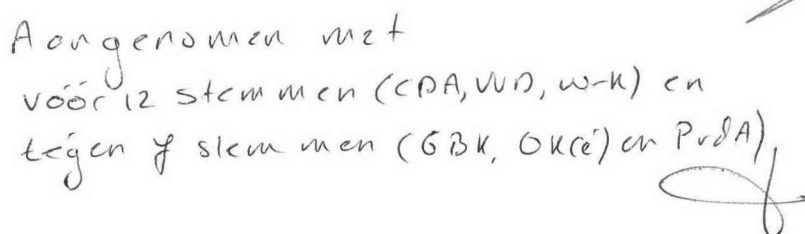 Aangenomen met
vóór 12 stemmen (CDA, VVD, W-K) en
tégen 7 stemmen (GBK, OK(é) en PvdA)